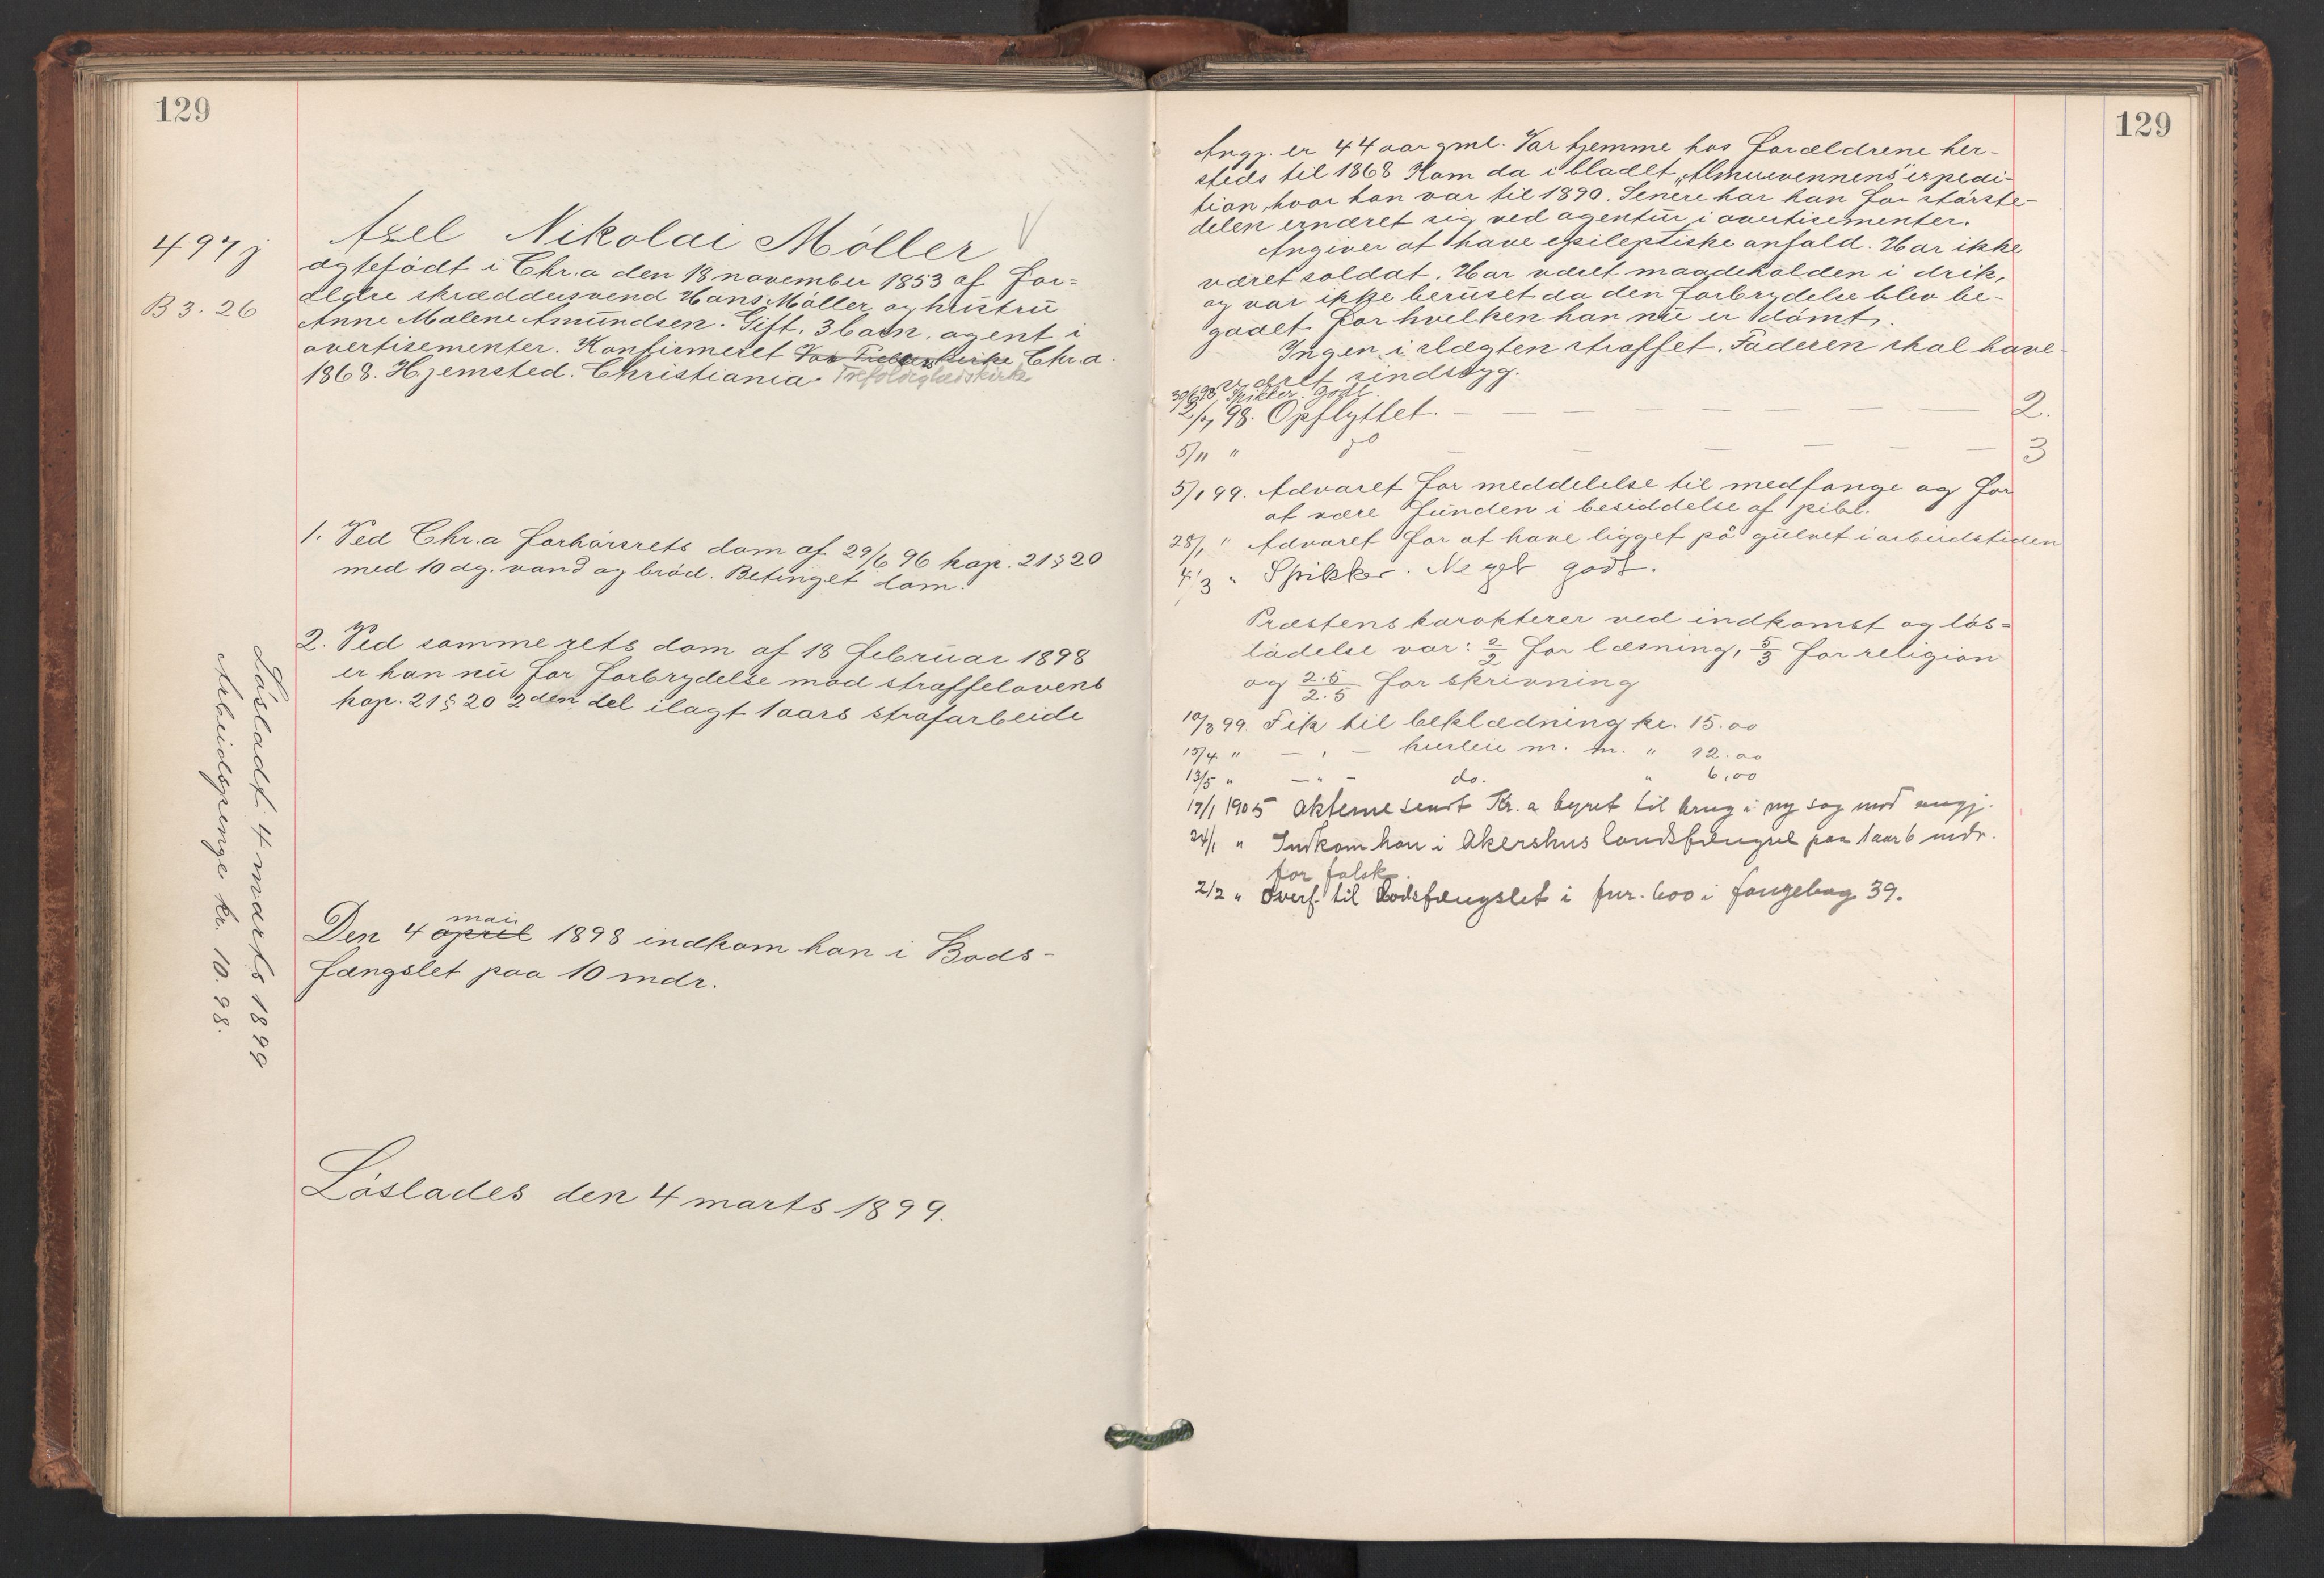 129
497 j
B 3. 26
Axel Nikolai Möller V
ægtefödt i Chr.a den 18 november 1853 af for=
ældre skræddersvend Hans Möller og hustru
Anne Malene Amundsen. Gift. 3 barn. agent i
avertisementer. Konfirmeret Vor Frelsers Kirke Chr.a.
1868. Hjemsted. Christiania. Trefoldighedskirke
1. Ved Chr.a forhörsrets dom af 29/6 96 kap. 21 § 20
med 10 dg. vand og bröd. Betinget dom.
2. Ved samme rets dom af 18 februar 1898
er han nu for forbrydelse mod straffelovens
kap. 21 § 20 2den del ilagt 1 aars strafarbeide
mai
Den 4 april 1898 indkom han i Bods-
fængslet paa 10 mdr.
Löslades den 4 marts 1899.
Lösladt 4 marts 1899
Arbeidspenge kr. 10.98.
129
Angj. er 44 aar gml. Var hjemme hos forældrene her-
steds til 1868 Kom da i bladet „Almuevennens" expedi-
tion, hvor han var til 1890. Senere har han for störste-
delen ernæret sig ved agentur i avertisementer.
Angiver at have epileptiske anfald. Har ikke
været soldat. Har været maadeholden i drik,
og var ikke beruset da den forbrydelse blev be-
gaaet for hvilken han nu er dömt.
Ingen i slægten straffet. Faderen skal have
været sindssyg.
30/6 98 Spikker. godt
2/7 98. Opflyttet. — — — — — 2.
5/11 " do — — — — — 3
5/1 99. Advaret for meddelelse til medfange og for
at være funden i besiddelse af pibe.
28/1 " Advaret for at have ligget på gulvet i arbeidstiden
4/3 " Spikker. Meget godt.
Præstens karakterer ved indkomst og lös=
ladelse var: 2/2 for læsning, 5/3 for religion
og 2.5/2.5 for skrivning
10/3 99. Fik til beklædning kr. 15.00
15/4 " — " — husleie m. m. " 12.00
13/5 " — " — do. " 6,00
17/1 1905 Akterne sendt Kr.a byret til brug i ny sag mod angj.
24/1 " Indkom han i Akershus landsfængsel paa 1 aar 6 mdr.
for falsk.
2/2 " Overf. til Bodsfængslet i fnr. 600 i fangebog 39.